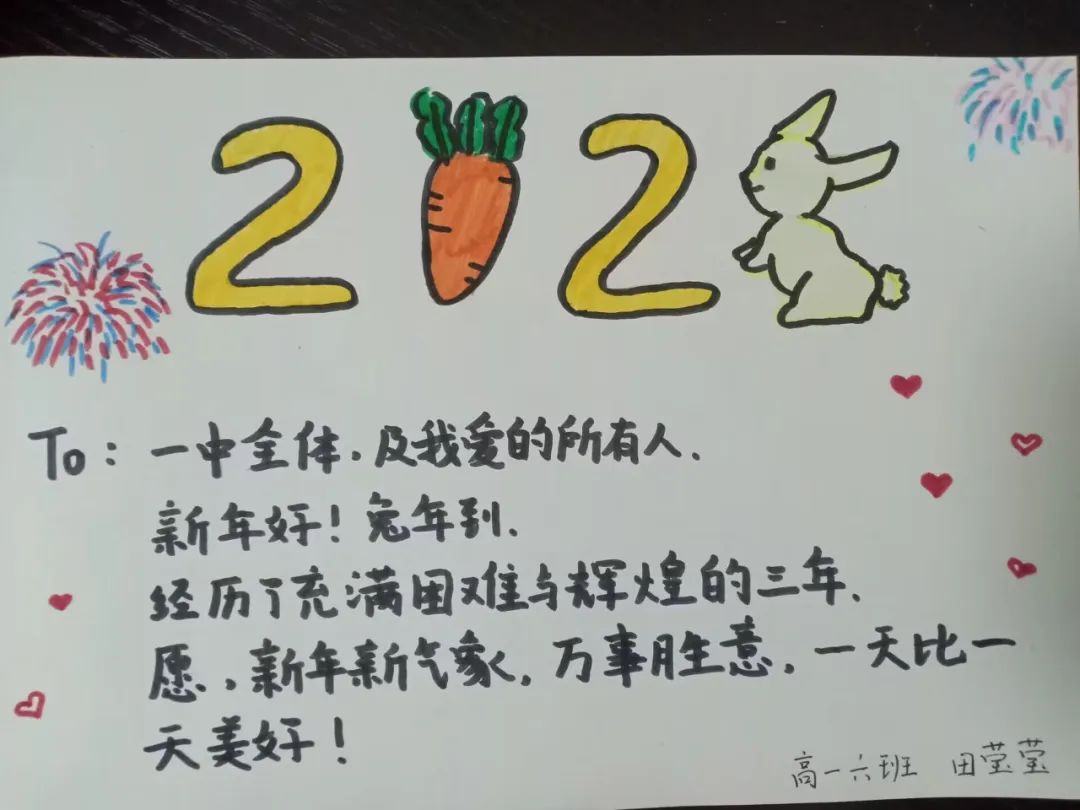 2 2
To：一中全体，及我爱的所有人.
新年好！兔年到.
经历了充满困难与辉煌的三年.
愿，新年新气象，万事胜意，一天比一
天美好！
高一六班 田莹莹